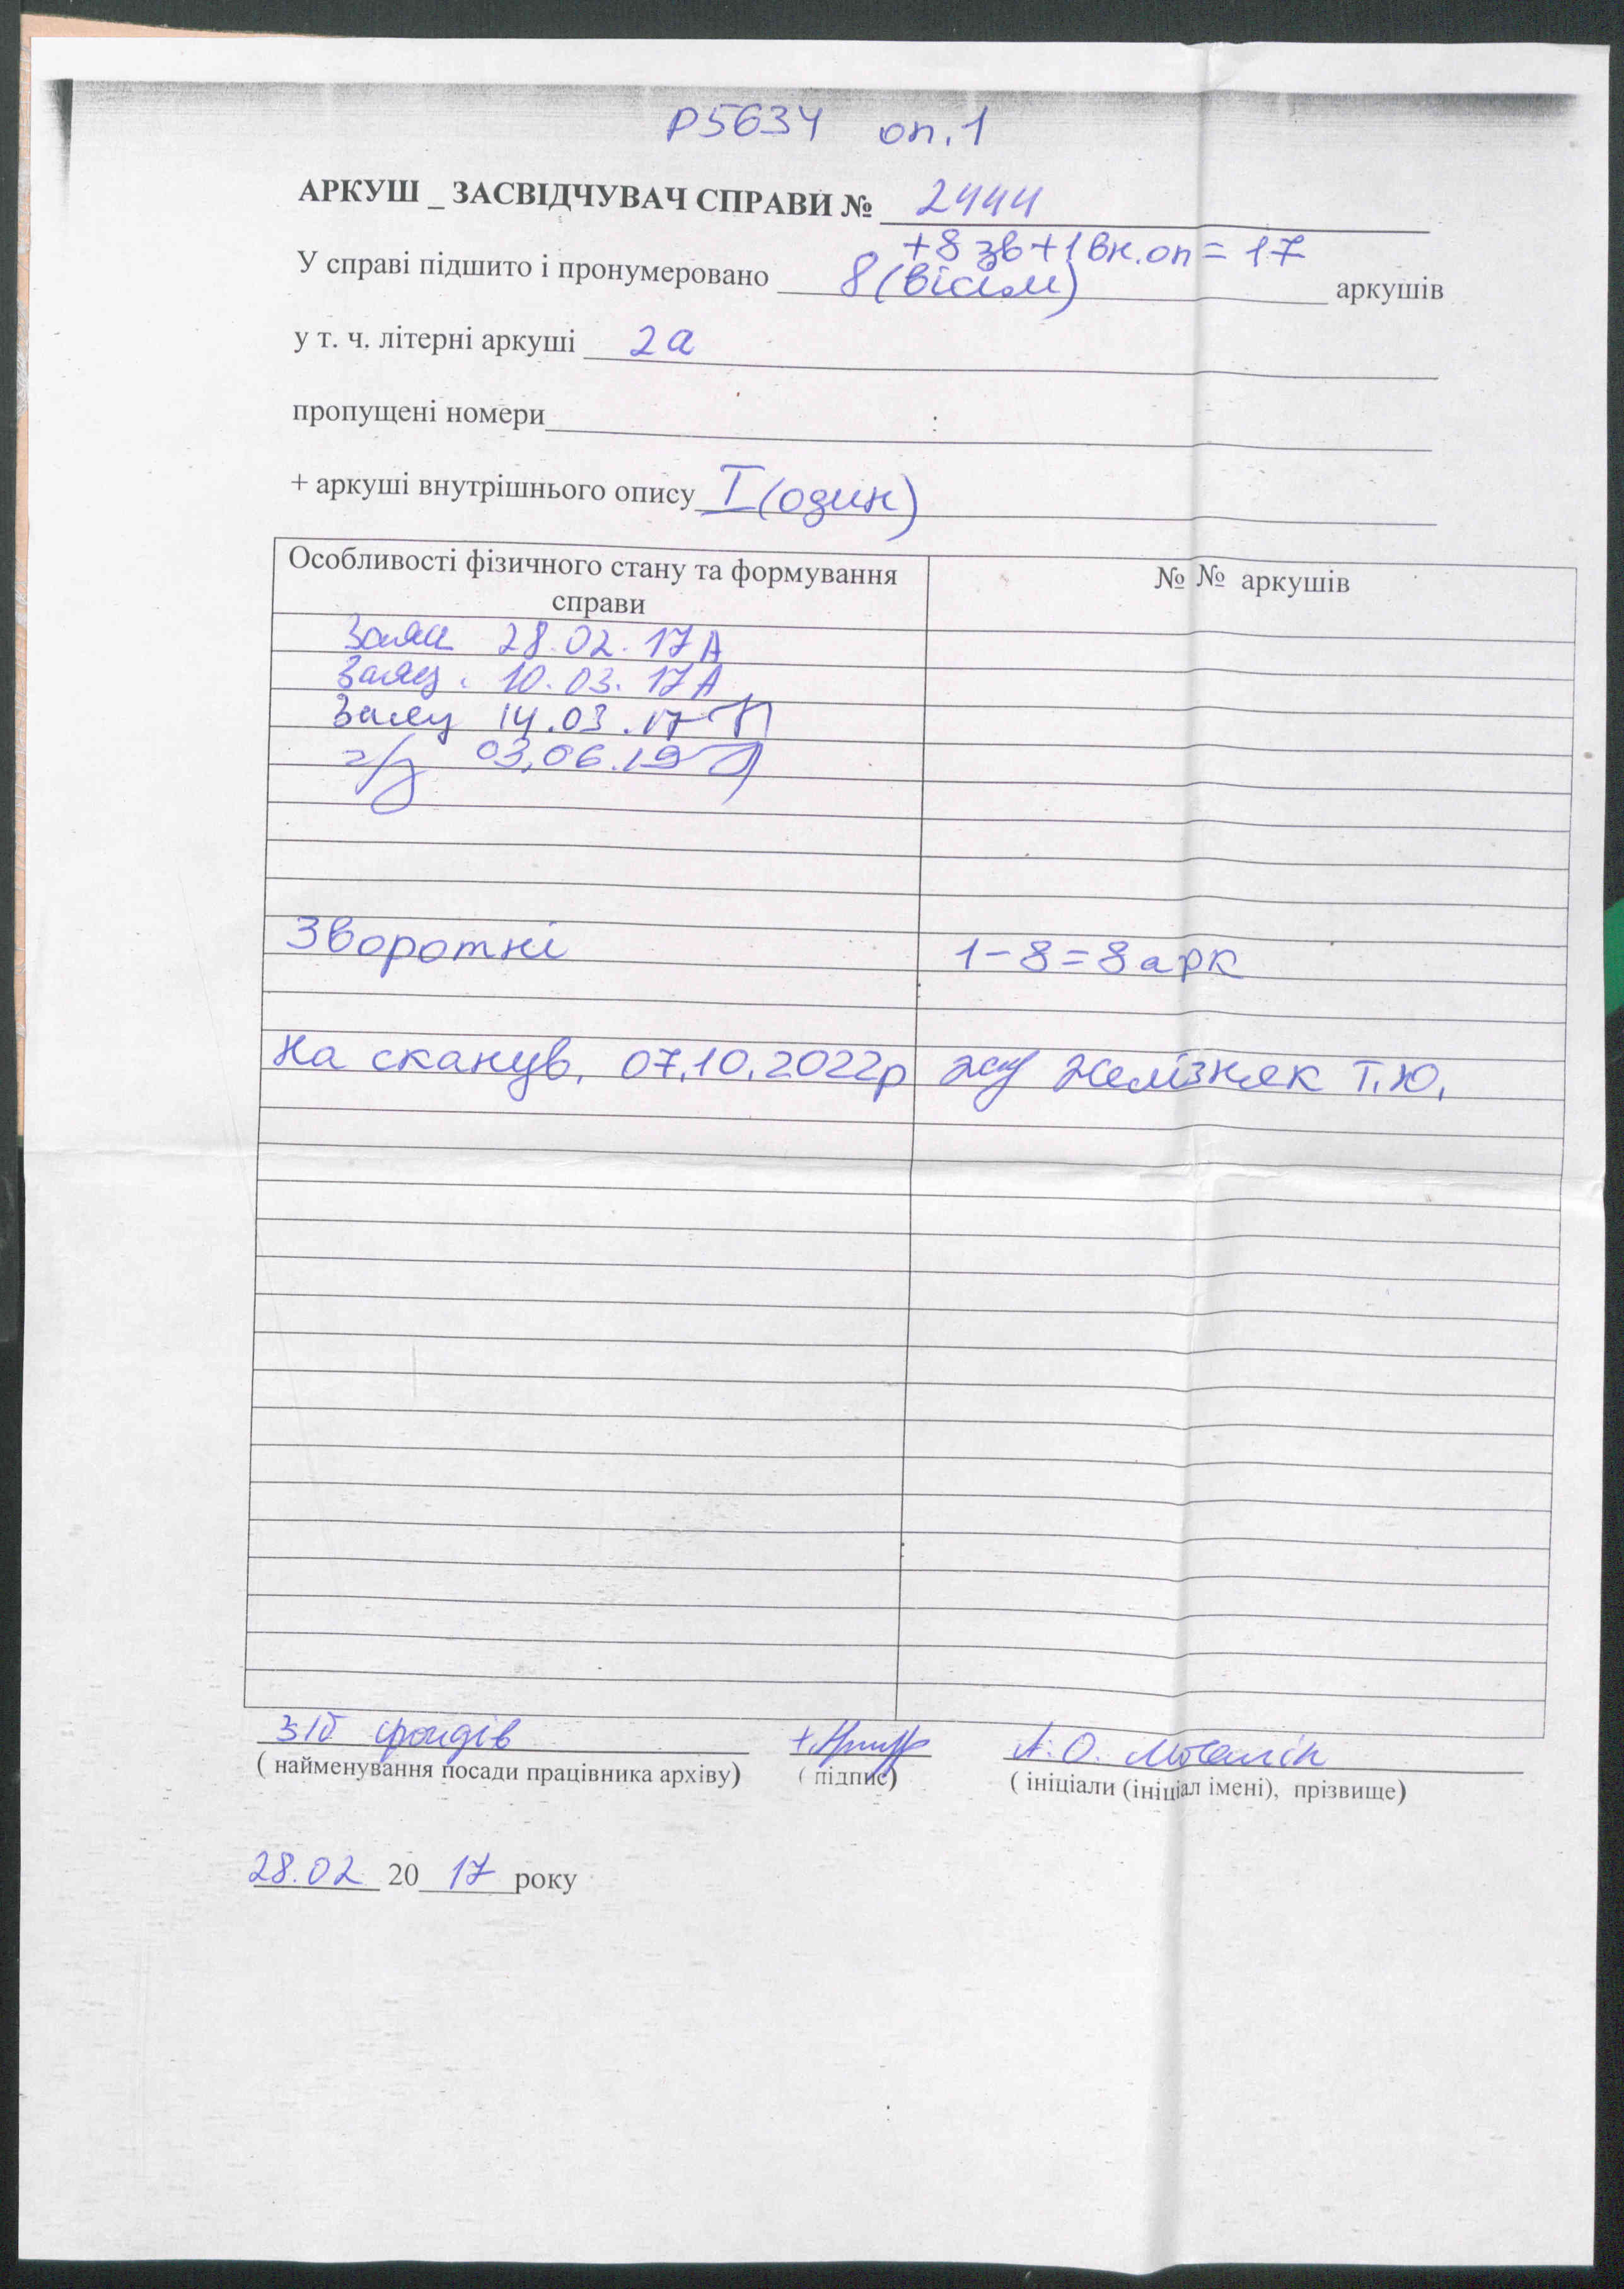 Р5634 оп.1
АРКУШ _ ЗАСВІДЧУВАЧ СПРАВИ № 2444
+8 зв+1вн.оп=17
У справі підшито і пронумеровано 8(вісім) аркушів
у т. ч. літерні аркуші 2а
пропущені номери
+ аркуші внутрішнього опису I(один)
Особливості фізичного стану та формування № № аркушів
справи
28.02.17
10.03.17
14.03.17
03.06.19
Зворотні 1-8=8арк
На сканув. 07.10.2022р Желізняк Т.Ю.
фондів А.О.
( найменування посади працівника архіву) ( підпис) ( ініціали (ініціал імені), прізвище)
28.02 20 17 року